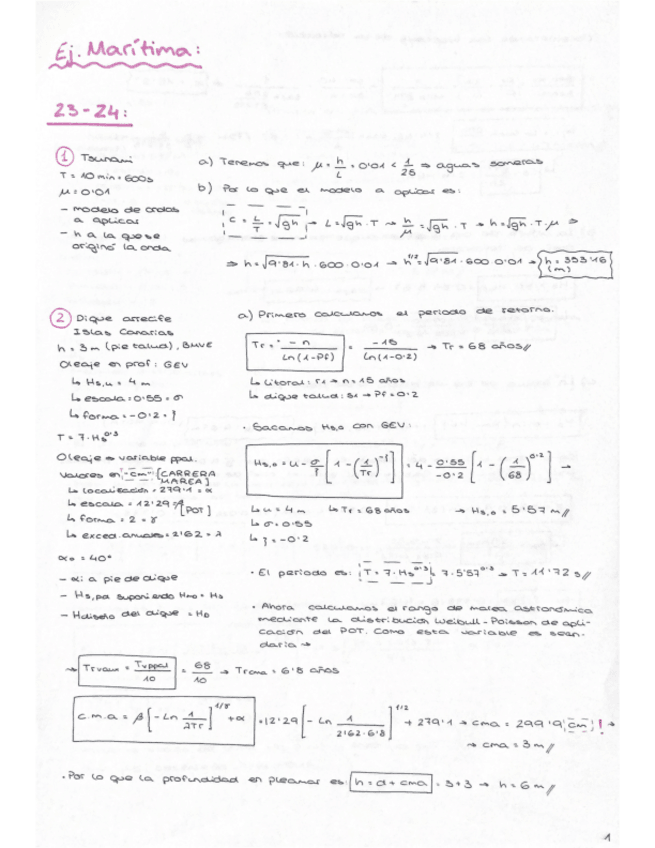 Ej. Marítima:
23-24:
① Tsunami
T = 10 min = 600s
μ = 0'01
- modelo de ondas a aplicar
- h a la que se originó la onda
a) Tenemos que: μ = h/L = 0'01 < 1/25 ⇒ aguas someras
b) Por lo que el modelo a aplicar es:
C = L/T = √gh → L = √gh · T → h/μ = √gh · T → h = √gh · T · μ ⇒
⇒ h = √9'81·h · 600 · 0'01 → h^1/2 = √9'81 · 600 · 0'01 → h = 353'16 (m)
② Dique arrecife
Islas Canarias
h = 3m (pie talud), BMVE
Oleaje en prof: GEV
↳ Hs,u = 4 m
↳ escala = 0'55 = σ
↳ forma = -0'2 = ξ
T = 7·Hs^0'3
Oleaje → variable ppal.
Valores en "cm" [CARRERA MAREA]
↳ localización = 279'1 = α
↳ escala = 12'29 = β [POT]
↳ forma = 2 = γ
↳ exced. anuales = 2'62 = λ
αo = 40°
- αi a pie de dique
- Hs,pd suponiendo Hmo = Hs
- H diseño del dique = HD
a) Primero calculamos el periodo de retorno.
Tr = -n / Ln(1-Pf) = -15 / Ln(1-0'2) → Tr = 68 años//
↳ Litoral: r1 → n = 15 años
↳ dique talud: s1 → Pf = 0'2
· Sacamos Hs,o con GEV:
Hs,o = u - σ/ξ [1 - (1/Tr)^-ξ] = 4 - 0'55/-0'2 [1 - (1/68)^0'2] →
↳ u = 4 m ↳ Tr = 68 años → Hs,o = 5'57 m//
↳ σ = 0'55
↳ ξ = -0'2
· El periodo es: T = 7·Hs^0'3 = 7·5'57^0'3 → T = 11'72 s//
· Ahora calculamos el rango de marea astronómica
mediante la distribución Weibull-Poisson de apli-
cación del POT. Como esta variable es secun-
daria →
→ Tr = Tvppal/10 = 68/10 → Tr cma = 6'8 años
c.m.a = β[-Ln 1/λTr]^1/γ + α = 12'29 [-Ln 1/2'62·6'8]^1/2 + 279'1 → cma = 299'9 cm! →
→ cma = 3 m//
· Por lo que la profundidad en pleamar es: h = d + cma = 3+3 → h = 6 m//
1